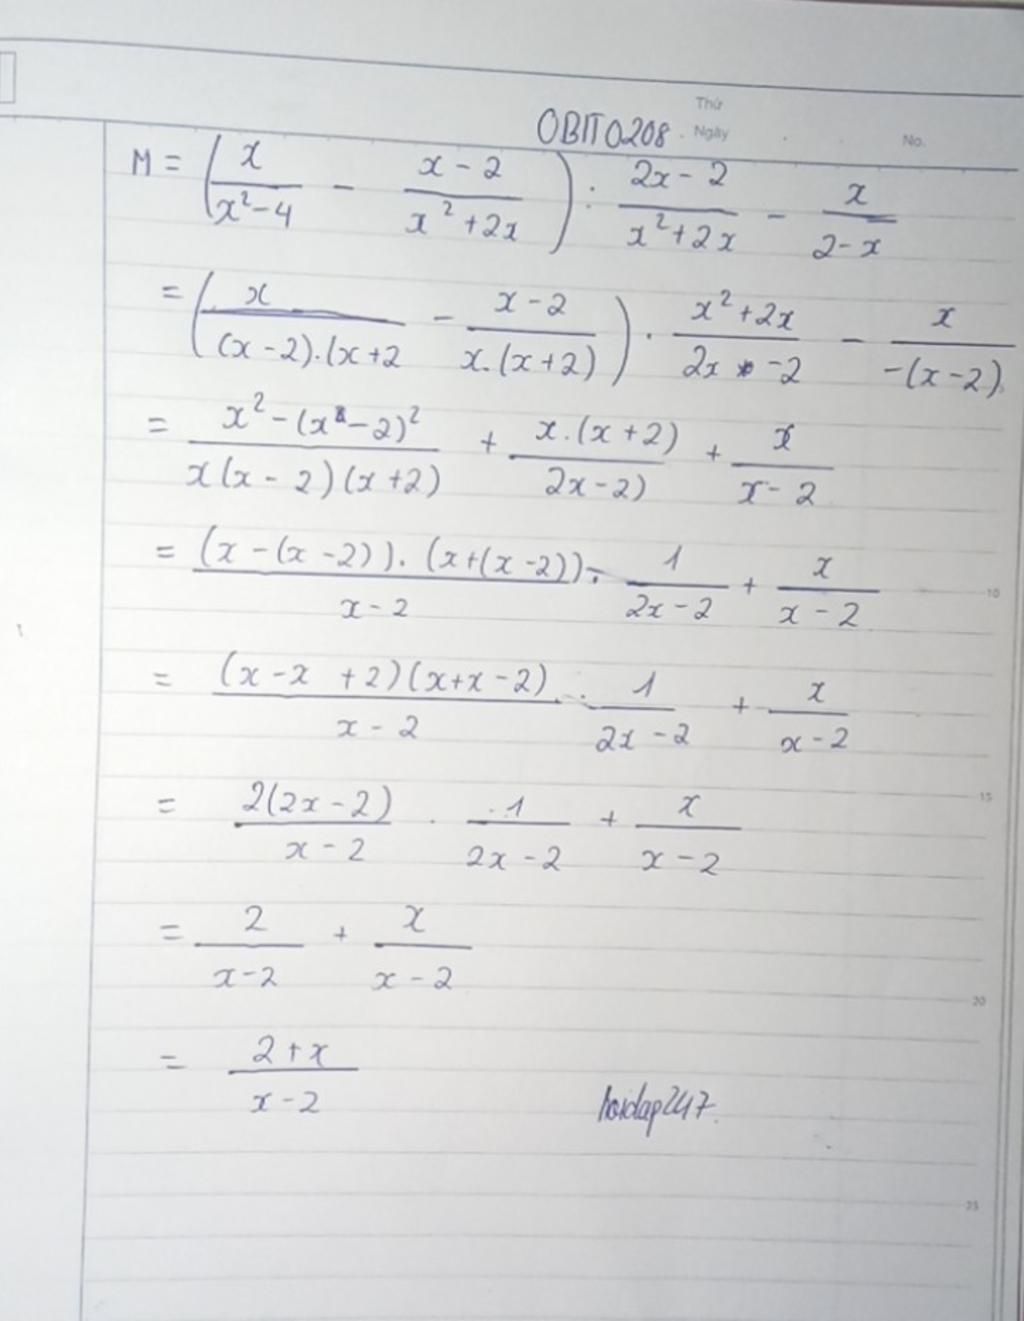 Thứ
OBITO208 . Ngày No.
M = (x/(x²-4) - (x-2)/(x²+2x)) : (2x-2)/(x²+2x) - x/(2-x)
= (x/((x-2).(x+2) - (x-2)/(x.(x+2))) . (x²+2x)/(2x-2) - x/(-(x-2))
= (x²-(x-2)²)/(x(x-2)(x+2)) + (x.(x+2))/(2x-2)) + x/(x-2)
= ((x-(x-2)).(x+(x-2)))/(x-2) . 1/(2x-2) + x/(x-2)
10
= ((x-x+2)(x+x-2))/(x-2) . 1/(2x-2) + x/(x-2)
15
= (2(2x-2))/(x-2) . 1/(2x-2) + x/(x-2)
= 2/(x-2) + x/(x-2)
20
= (2+x)/(x-2)
hoidap247.
25